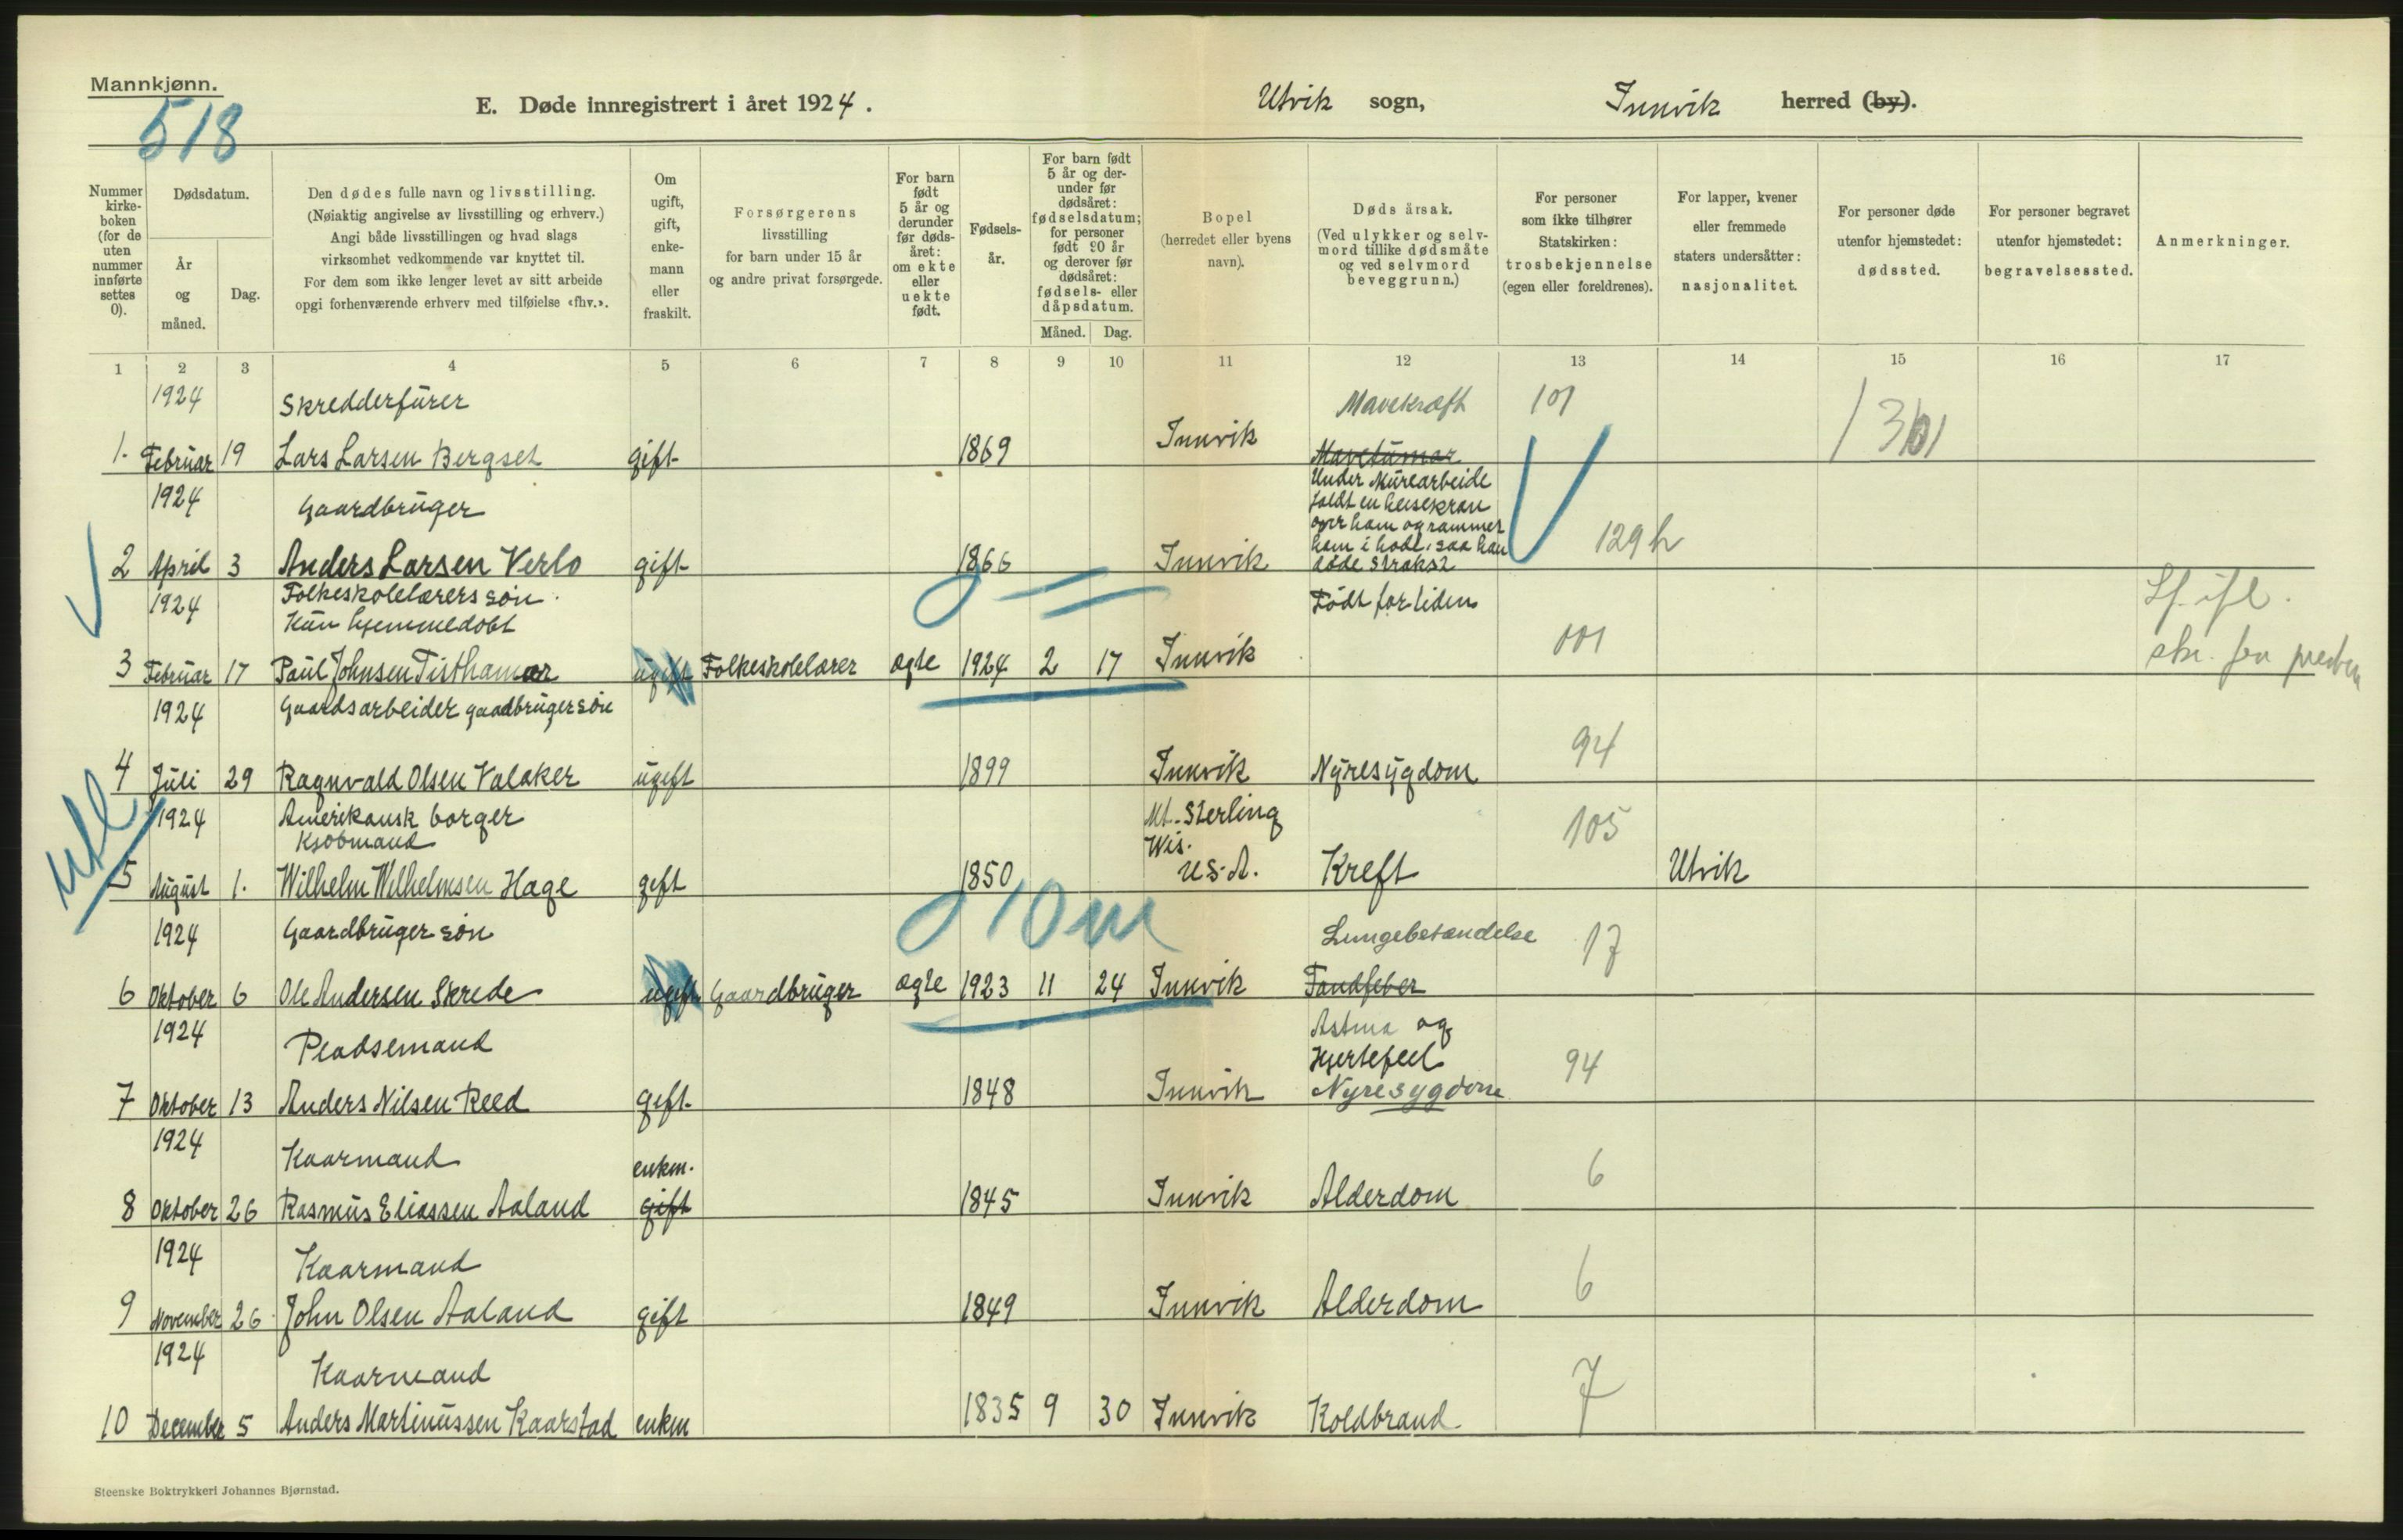 Mannkjønn.
518
E. Døde innregistrert i året 1924.
Utvik sogn, Innvik herred (by).
Nummer kirkeboken (for de uten nummer innførte settes 0).
Dødsdatum.
År og måned.
Dag.
Den dødes fulle navn og livsstilling.
(Nøiaktig angivelse av livsstilling og erhverv.)
Angi både livsstillingen og hvad slags
virksomhet vedkommende var knyttet til.
For dem som ikke lenger levet av sitt arbeide
opgi forhenværende erhverv med tilføielse «fhv.».
Om ugift, gift, enkemann eller fraskilt.
Forsørgerens livsstilling
for barn under 15 år
og andre privat forsørgede.
For barn født 5 år og derunder før dødsåret: om ekte eller uekte født.
Fødselsår.
For barn født 5 år og derunder før dødsåret: fødselsdatum; for personer født 90 år og derover før dødsåret: fødsels- eller dåpsdatum.
Måned. Dag.
Bopel
(herredet eller byens navn).
Dødsårsak.
(Ved ulykker og selvmord tillike dødsmåte og ved selvmord beveggrunn.)
For personer som ikke tilhører Statskirken: trosbekjennelse (egen eller foreldrenes).
For lapper, kvener eller fremmede staters undersåtter: nasjonalitet.
For personer døde utenfor hjemstedet: dødssted.
For personer begravet utenfor hjemstedet: begravelsessted.
Anmerkninger.
1 2 3 4 5 6 7 8 9 10 11 12 13 14 15 16 17
1924 Skredderfürer Mavekræft 101
1. Februar 19 Lars Larsen Bergset gift 1869 Innvik Mavetumor
1924 Gaardbruger Under Murearbeide
faldt en heisekran
over ham og rammet
ham i hodet, saa han 129 h
2 April 3 Anders Larsen Verlo gift 1866 Innvik døde straks
1924 Folkeskolelærers søn. Født for tiden
Kun hjemmedøbt
3 Februar 17 Paul Johnsen Tisthamar ugift Folkeskolelærer ægte 1924 2 17 Innvik 001
skr. fra presten
1924 Gaardsarbeider gaadbrugersøn
4 Juli 29 Ragnvald Olsen Valaker ugift 1899 Innvik Nyresygdom 94
utl
1924 Amerikansk borger Mt. Sterling
Kjøbmand Wis. 105
5 August 1. Wilhelm Wilhelmsen Hage gift 1850 U.S.A. Kreft Utvik
1924 Gaardbruger søn 0 10 m Lungebetændelse 17
6 Oktober 6 Ole Andersen Skrede ugift Gaardbruger ægte 1923 11 24 Innvik Tandfeber
1924 Pladsemand Astma og
Hjertefeil 94
7 Oktober 13 Anders Nilsen Reed gift 1848 Innvik Nyresygdom
1924 Kaarmand enkm. 6
8 Oktober 26 Rasmus Eliassen Aaland gift 1845 Innvik Alderdom
1924 Kaarmand 6
9 November 26 John Olsen Aaland gift 1849 Innvik Alderdom
1924 Kaarmand 7
10 December 5 Anders Martinussen Kaarstad enkm 1835 9 30 Innvik Koldbrand
Steenske Boktrykkeri Johannes Bjørnstad.